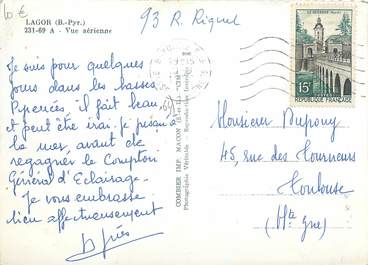 10 €
LAGOR (B.-Pyr.)
231-69 A - Vue aérienne
93 R. Riquel
Je suis pour quelques
jours dans les basses
Pyrénées, il fait beau
et peut être irai-je jusqu'à
la mer, avant de
regagner le Comptoir
Général d'Eclairage.
Je vous embrasse
bien affectueusement
COMBIER IMP. MACON
Photographie Véritable - Reproduction Interdite
LE QUESNOY (Nord)
15F
POSTES
REPUBLIQUE FRANÇAISE
Monsieur Dupouy
45, rue des Tourneurs
Toulouse
(Hte Gne)